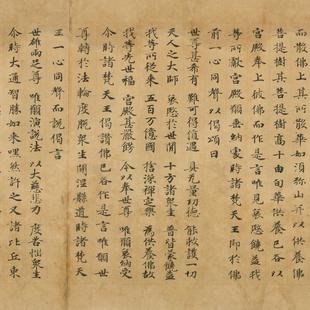 而散佛上其所散華如須弥山并以供養佛
菩提樹其菩提樹高十由旬華供養已各以
宮殿奉上彼佛而作是言唯見哀愍饒益我
等所獻宮殿願垂納受時諸梵天王即於佛
前一心同聲以偈頌曰
世尊甚希有 難可得值遇 具无量功德 能救護一切
天人之大師 哀愍於世間 十方諸衆生 普皆蒙饒益
我等所從来 五百万億國 捨深禪定樂 為供養佛故
我等先世福 宮殿甚嚴飾 今以奉世尊 唯願哀納受
尒時諸梵天王偈讃佛已各作是言唯願世
尊轉於法輪度脱衆生開涅槃道時諸梵天
王一心同聲而說偈言
世雄兩足尊 唯願演說法 以大慈悲力 度苦惱衆生
尒時大通智勝如来嘿然許之又諸比丘東